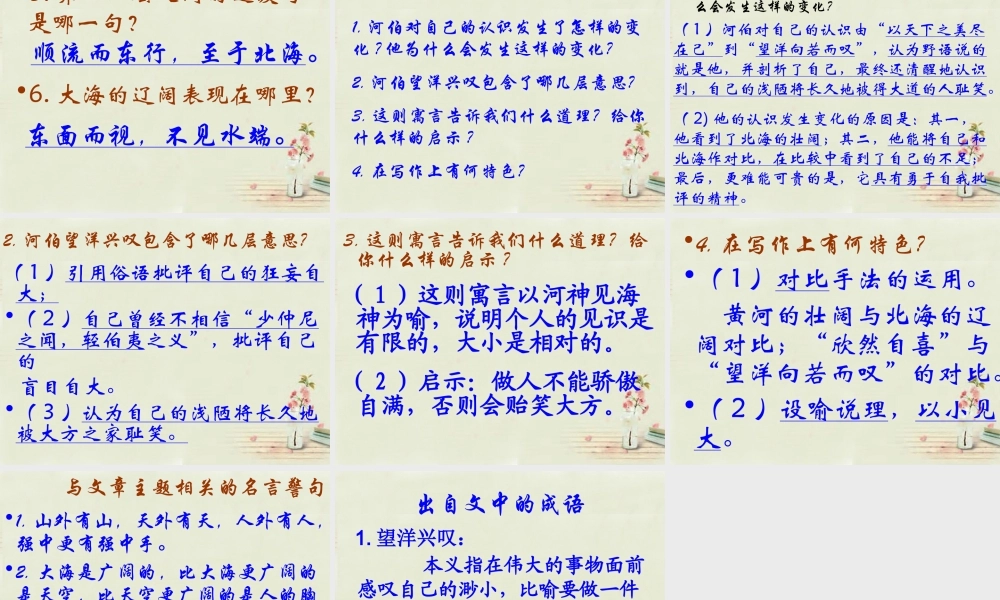 是哪一句?
顺流而东行，至于北海。
•6. 大海的辽阔表现在哪里?
东面而视，不见水端。
1. 河伯对自己的认识发生了怎样的变
化?他为什么会发生这样的变化?
2. 河伯望洋兴叹包含了哪几层意思?
3. 这则寓言告诉我们什么道理? 给你
什么样的启示?
4. 在写作上有何特色?
么会发生这样的变化?
（1）河伯对自己的认识由“以天下之美尽
在己”到“望洋向若而叹”，认为野语说的
就是他，并剖析了自己，最终还清醒地认识
到，自己的浅陋将长久地被得大道的人耻笑。
（2)他的认识发生变化的原因是：其一，
他看到了北海的壮阔；其二，他能将自己和
北海作对比，在比较中看到了自己的不足；
最后，更难能可贵的是，它具有勇于自我批
评的精神。
2. 河伯望洋兴叹包含了哪几层意思?
（1）引用俗语批评自己的狂妄自
大；
•（2）自己曾经不相信“少仲尼
之闻，轻伯夷之义”，批评自己
的
盲目自大。
•（3）认为自己的浅陋将长久地
被大方之家耻笑。
3. 这则寓言告诉我们什么道理? 给
你什么样的启示?
（1）这则寓言以河神见海
神为喻，说明个人的见识是
有限的，大小是相对的。
（2）启示：做人不能骄傲
自满，否则会贻笑大方。
•4. 在写作上有何特色?
•（1）对比手法的运用。
黄河的壮阔与北海的辽
阔对比；“欣然自喜”与
“望洋向若而叹”的对比。
•（2）设喻说理，以小见
大。
与文章主题相关的名言警句
•1. 山外有山，天外有天，人外有人，
强中更有强中手。
•2. 大海是广阔的，比大海更广阔的
是天空，比天空更广阔的是人的胸
出自文中的成语
1. 望洋兴叹：
本义指在伟大的事物面前
感叹自己的渺小，比喻要做一件